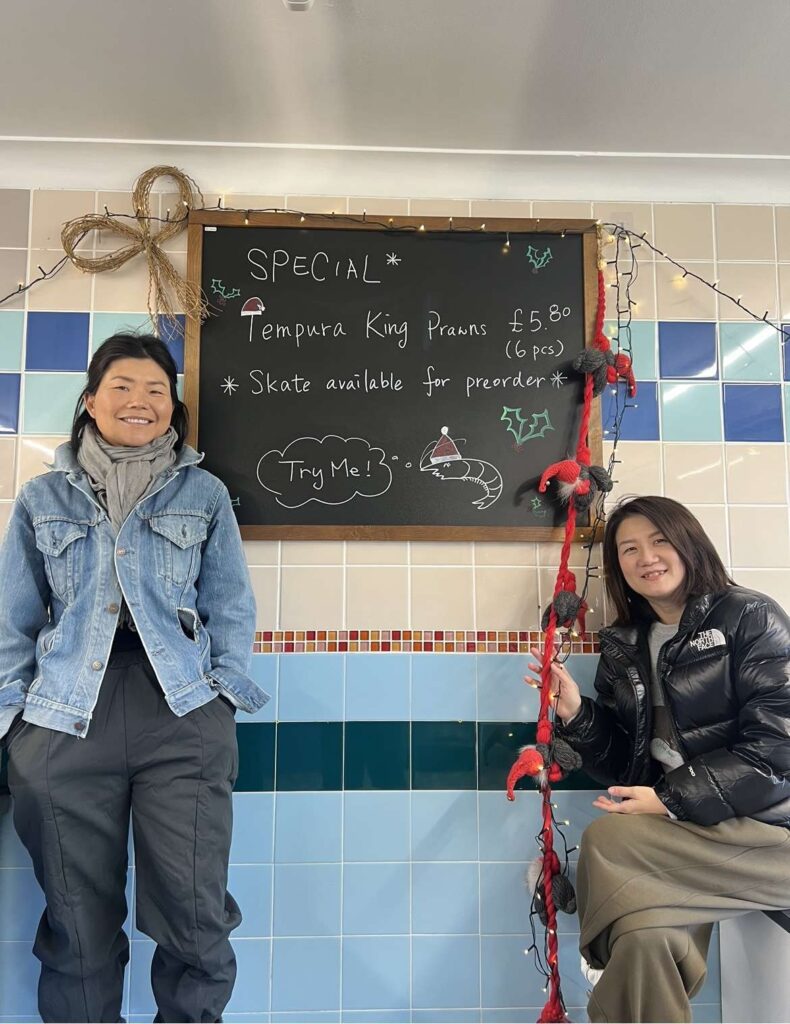 SPECIAL*
Tempura King Prawns £5.80
(6 pcs)
* Skate available for preorder *
Try Me!
THE NORTH FACE